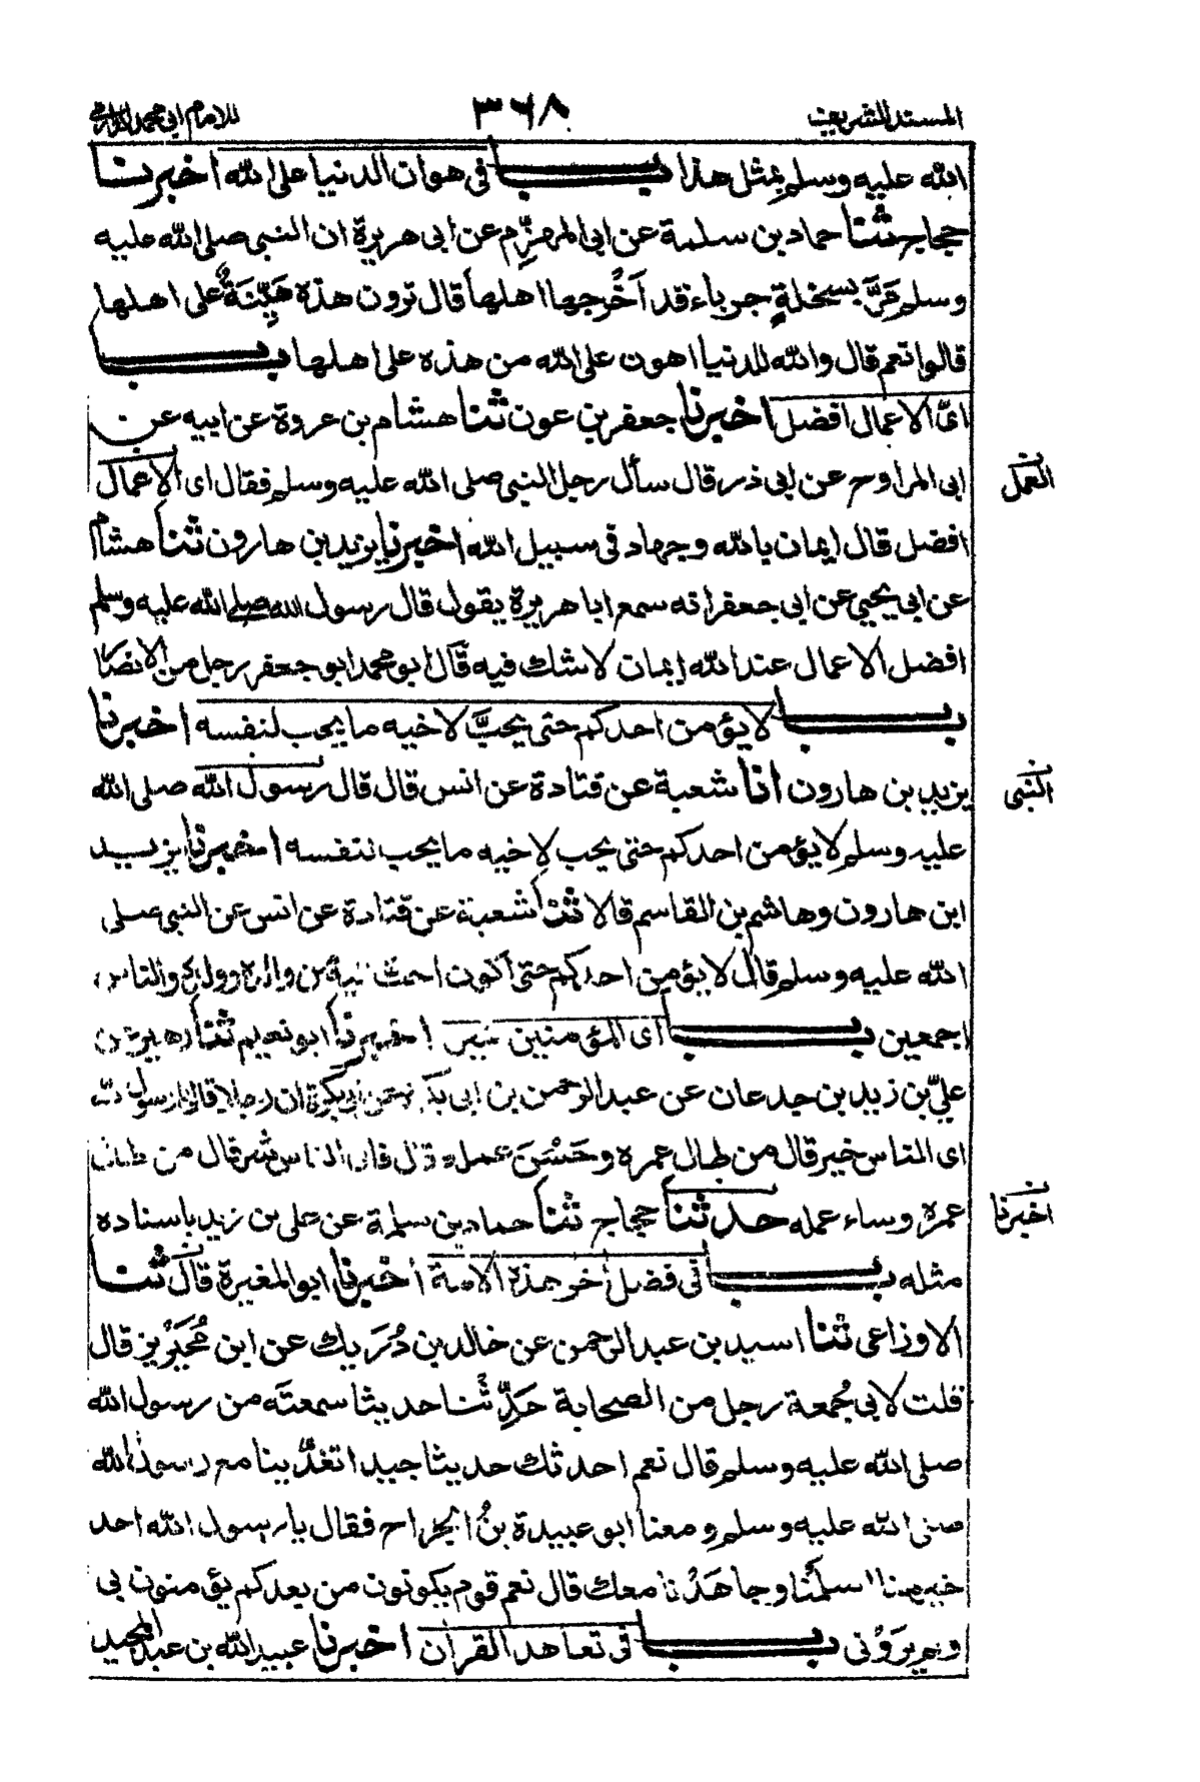 المسند الشريف ٣٦٨ للامام ابي محمد الدارمي
الله عليه وسلم بمثل هذا باب في هوان الدنيا على الله اخبرنا
حجاج ثنا حماد بن سلمة عن ابي المهزّم عن ابي هريرة ان النبي صلى الله عليه
وسلم مَرَّ بسخلةٍ جرباء قد اَخْرجها اهلها قال ترون هذه هَيِّنَةٌ على اهلها
قالوا نعم قال والله للدنيا اهون على الله من هذه على اهلها باب
ايّ الاعمال افضل اخبرنا جعفر بن عون ثنا هشام بن عروة عن ابيه عن
ابي المراوح عن ابي ذر قال سأل رجل النبي صلى الله عليه وسلم فقال اى الاعمال
العمل
افضل قال ايمان بالله وجهاد في سبيل الله اخبرنا يزيد بن هارون ثنا هشام
عن ابي يحيى عن ابي جعفر انه سمع ابا هريرة يقول قال رسول الله صلى الله عليه وسلم
افضل الاعمال عند الله ايمان لا شك فيه قال ابو محمد ابو جعفر رجل من الانصار
باب لا يؤمن احدكم حتى يحبَّ لاخيه ما يحب لنفسه اخبرنا
يزيد بن هارون انا شعبة عن قتادة عن انس قال قال رسول الله صلى الله
النبي
عليه وسلم لا يؤمن احدكم حتى يحب لاخيه ما يحب لنفسه اخبرنا يزيد
ابن هارون وهاشم بن القاسم قالا ثنا شعبة عن قتادة عن انس عن النبي صلى
الله عليه وسلم قال لا يؤمن احدكم حتى اكون احب اليه من والده وولده والناس
اجمعين باب اى المؤمنين خير اخبرنا ابو نعيم ثنا زهير عن
عليّ بن زيد بن جدعان عن عبد الرحمن بن ابي بكرة عن ابي بكرة ان رجلا قال يا رسول الله
اى الناس خير قال من طال عمره وحَسُنَ عمله قال فاى الناس شر قال من طال
عمره وساء عمله حدثنا حجاج ثنا حماد بن سلمة عن علي بن زيد باسناده
اخبرنا
مثله باب في فضل اخر هذه الامة اخبرنا ابو المغيرة قال ثنا
الاوزاعي ثنا اسيد بن عبد الرحمن عن خالد بن دُرَيك عن ابن مُحَيْريز قال
قلت لابي جُمعة رجل من الصحابة حَدِّثَنا حديثا سمعتَه من رسول الله
صلى الله عليه وسلم قال نعم احدثك حديثا جيدا تغدّينا مع رسول الله
صلى الله عليه وسلم ومعنا ابو عبيدة بنُ الجراح فقال يا رسول الله احد
خير منا اسلمْنا وجاهَدْنا معك قال نعم قوم يكونون من بعدكم يؤمنون بي
ولم يرَوْني باب في تعاهد القران اخبرنا عبيد الله بن عبد المجيد